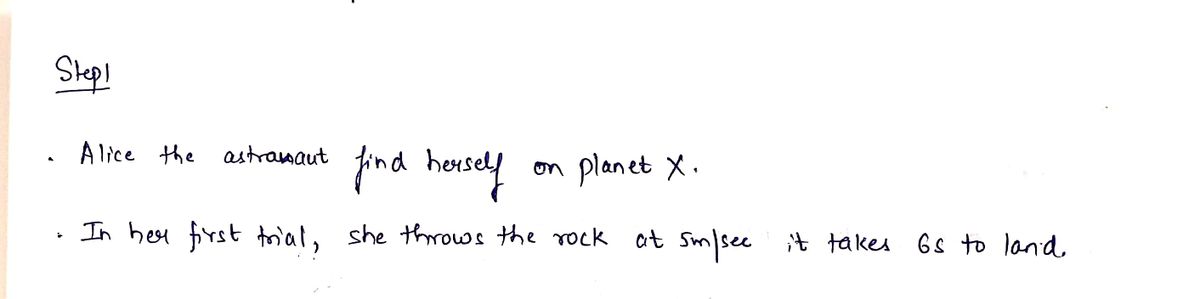 Step1
. Alice the astranaut find herself on planet X.
. In her first trial, she throws the rock at 5m/sec it takes 6s to land.